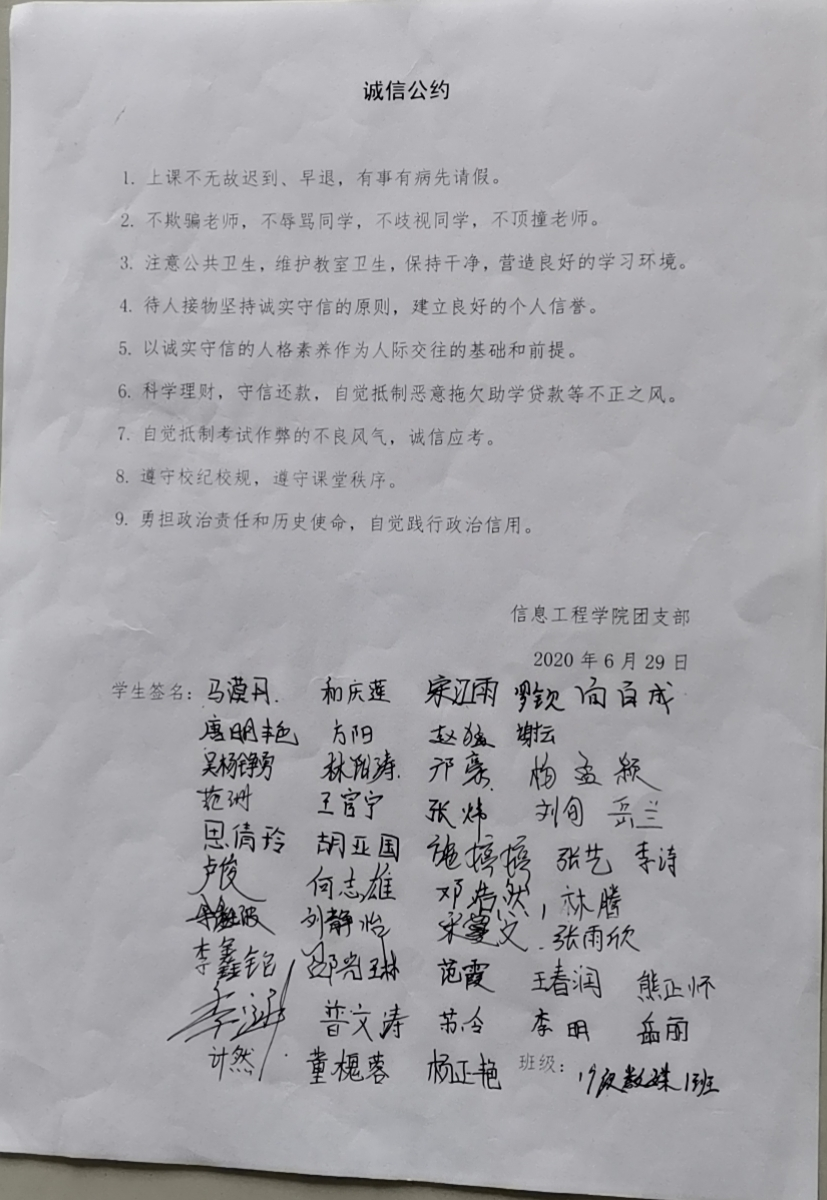 诚信公约
1. 上课不无故迟到、早退，有事有病先请假。
2. 不欺骗老师，不辱骂同学，不歧视同学，不顶撞老师。
3. 注意公共卫生，维护教室卫生，保持干净，营造良好的学习环境。
4. 待人接物坚持诚实守信的原则，建立良好的个人信誉。
5. 以诚实守信的人格素养作为人际交往的基础和前提。
6. 科学理财，守信还款，自觉抵制恶意拖欠助学贷款等不正之风。
7. 自觉抵制考试作弊的不良风气，诚信应考。
8. 遵守校纪校规，遵守课堂秩序。
9. 勇担政治责任和历史使命，自觉践行政治信用。
信息工程学院团支部
2020 年 6 月 29 日
学生签名：马漠丹 和庆莲 宋江雨 罗钦 向百成
唐明艳 方阳 赵猛 谢云
吴杨铮勇 林阳涛 邓豪 杨孟颖
范洲 王官宁 张炜 刘旬 岳兰
思倩玲 胡亚国 施婷婷 张艺 李涛
卢俊 何志雄 邓浩然 林腾
刘静怡 张雨欣
李鑫铭 邵光林 范霞 王春润 熊正师
李 普文涛 苏令 李明 岳丽
计然 董槐蓉 杨正艳 班级：19级数媒1班